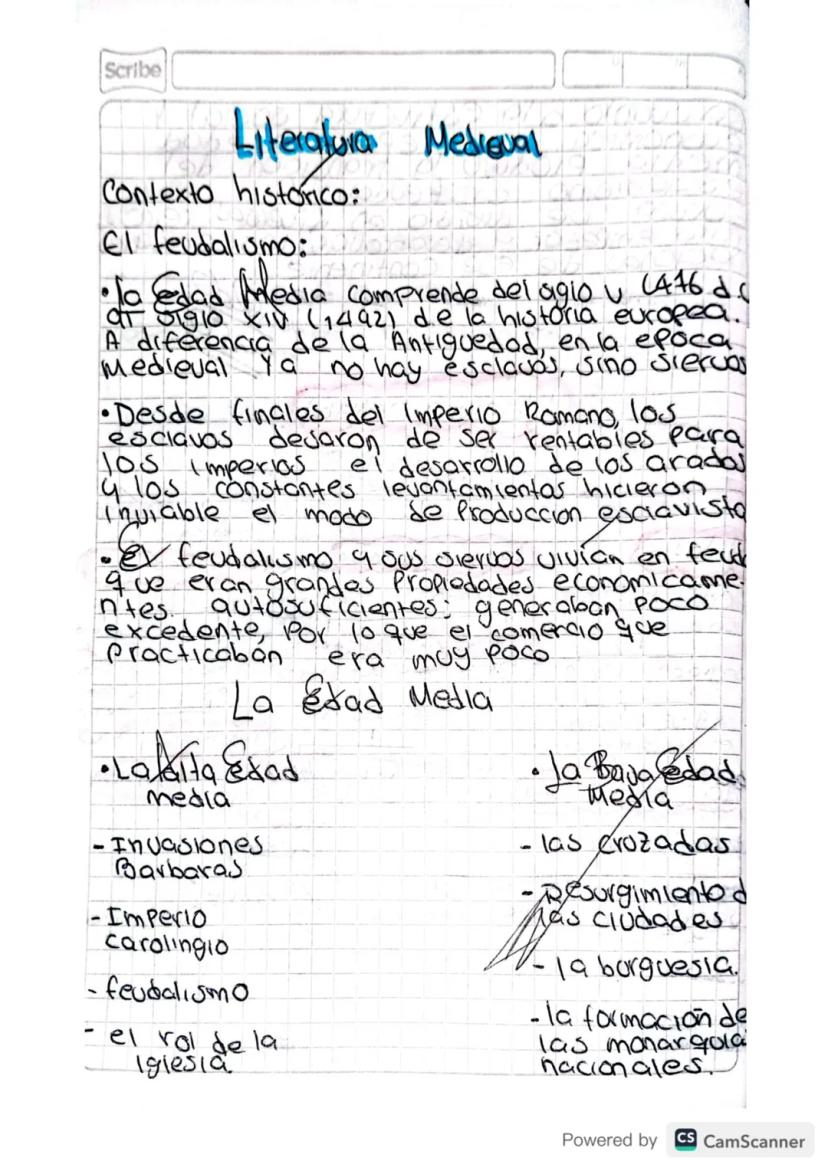 Scribe
Literatura Medieval
Contexto histórico:
El feudalismo:
•la Edad Media comprende del siglo v (476 d.c
al siglo XIV (1492) de la historia europea.
A diferencia de la Antiguedad, en la epoca
medieval Ya no hay esclavos, sino siervos
•Desde finales del Imperio Romano, los
esclavos desaron de ser rentables para
los imperios el desarrollo de los arados
y los constantes levantamientos hicieron
inviable el modo de Produccion esclavista
•El feudalismo y sus siervos vivían en feud
que eran grandes Propiedades economicame-
ntes. autosuficientes: generaban poco
excedente, por lo que el comercio que
practicaban era muy poco
La Edad Media
•La Alta Edad
media
- Invasiones
Barbaras
- Imperio
carolingio
- feudalismo
- el rol de la
Iglesia
• la Baja Edad
Media
- las cruzadas
- Resurgimiento d
las ciudades
- la burguesia.
- la formación de
las monarquia
nacionales.
Powered by CS CamScanner